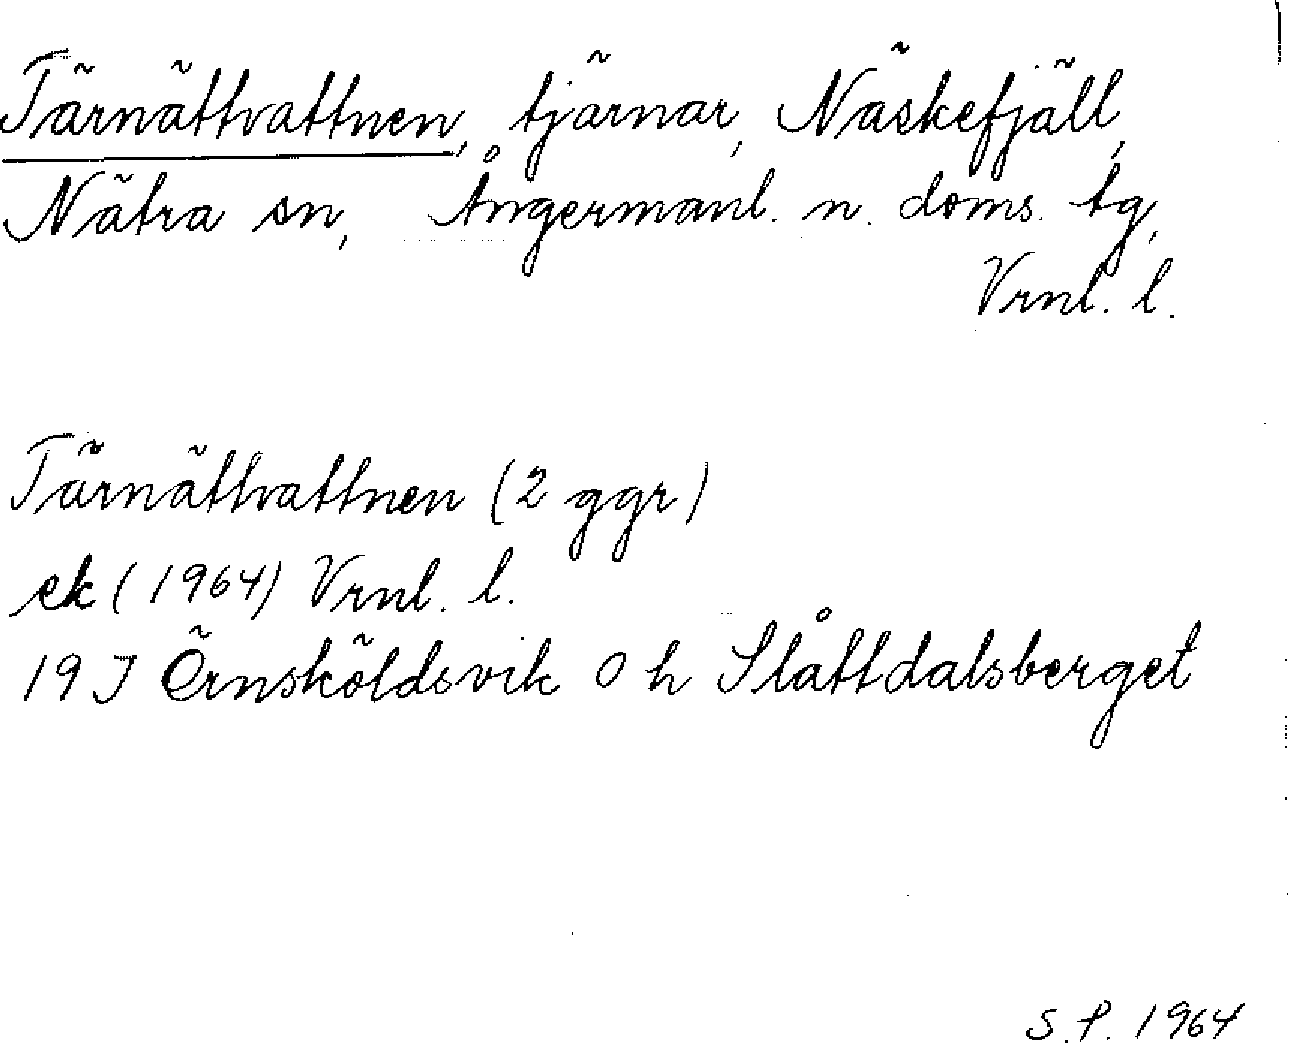 Tärnättvattnen, tjärnar, Näskefjäll,
Nätra sn, Ångermanl. n. doms. tg,
Vrnl. l.
Tärnättvattnen (2 ggr)
ek (1964) Vrnl. l.
19 J Örnsköldsvik O h Slåttdalsberget
S.P. 1964